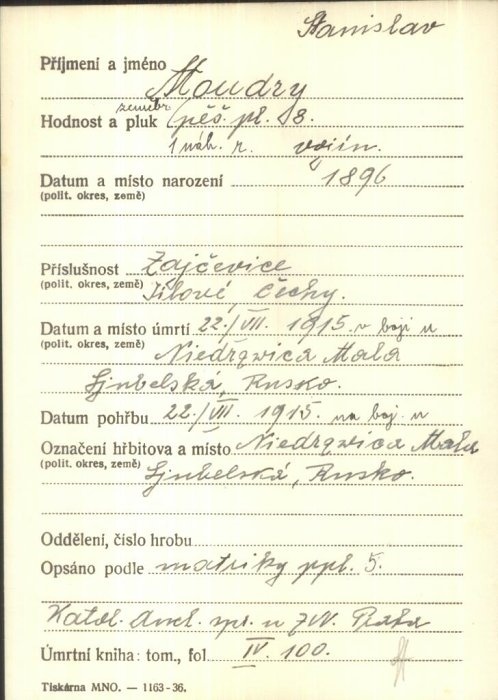 Stanislav
Příjmení a jméno Moudry
zeměbr.
Hodnost a pluk pěš. pl. 8.
1 náh. r. vojín.
Datum a místo narození 1896
(polit. okres, země)
Příslušnost Zajčevice
(polit. okres, země) Jílové, Čechy.
Datum a místo úmrtí 22./VII. 1915. v boji u
(polit. okres, země) Niedrzwica Mala
Ljubelská, Rusko.
Datum pohřbu 22./VII. 1915. na boj. u
Označení hřbitova a místo Niedrzwica Mala
(polit. okres, země) Ljubelská, Rusko.
Oddělení, číslo hrobu
Opsáno podle matriky ppl. 5.
Katol. duch. spr. u ZVV. Praha
Úmrtní kniha: tom., fol IV. 100.
Tiskárna MNO. — 1163-36.